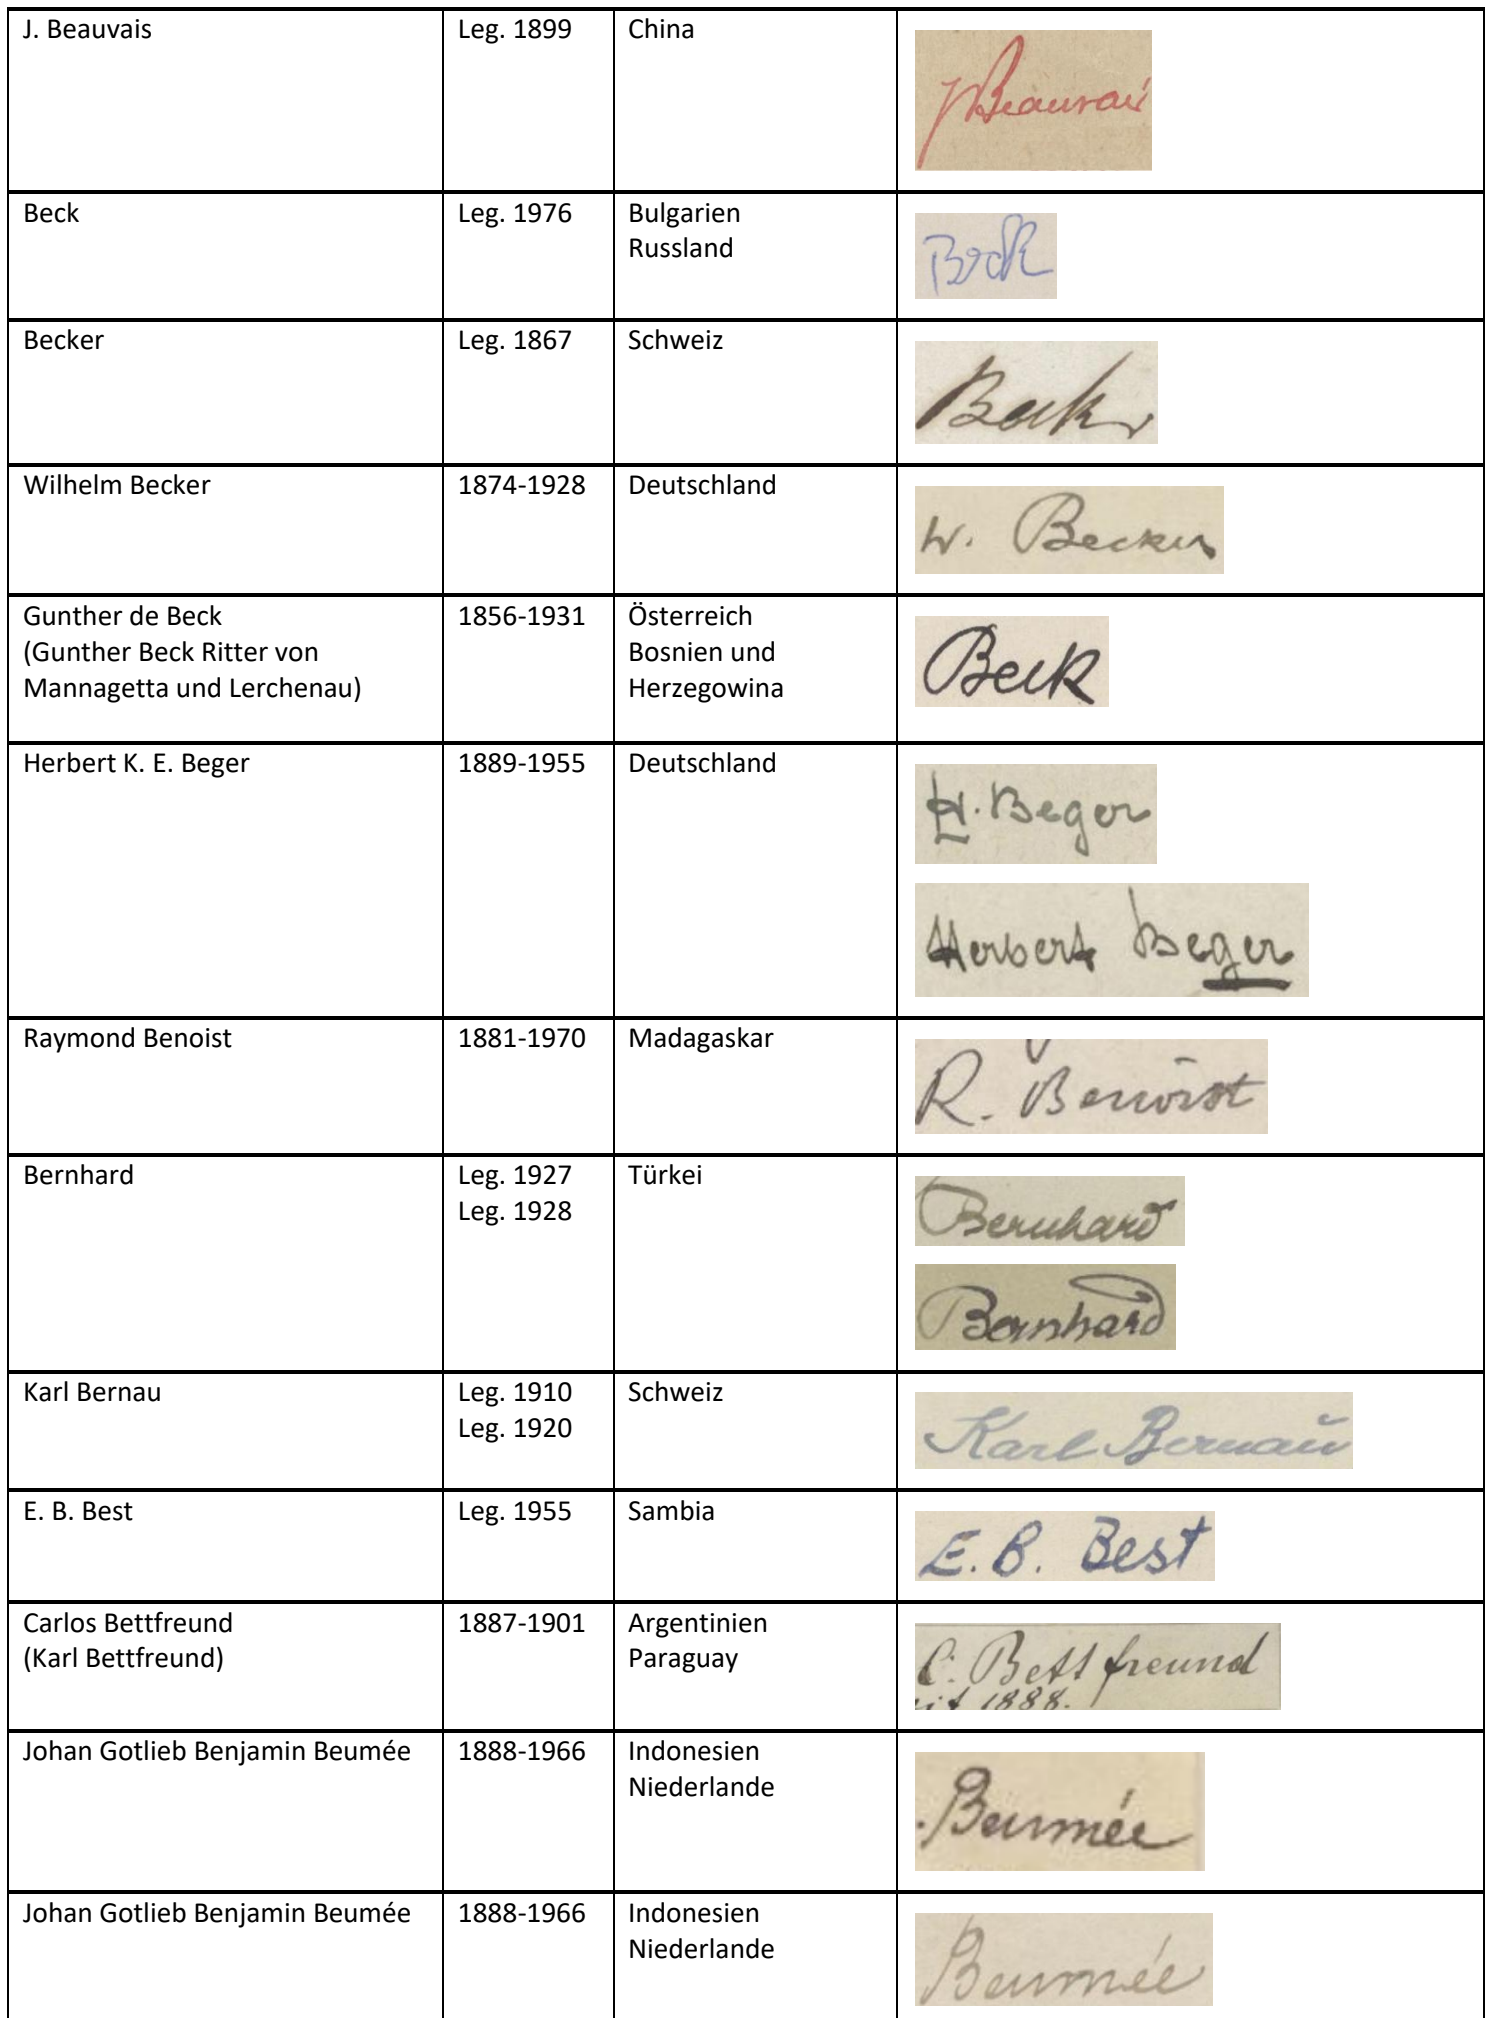 J. Beauvais Leg. 1899 China JBeauvais
Beck Leg. 1976 Bulgarien
Russland
Beck
Becker Leg. 1867 Schweiz
Becker
Wilhelm Becker 1874-1928 Deutschland
W. Becker
Gunther de Beck 1856-1931 Österreich
(Gunther Beck Ritter von Bosnien und
Mannagetta und Lerchenau) Herzegowina
Beck
Herbert K. E. Beger 1889-1955 Deutschland
H. Beger
Herbert Beger
Raymond Benoist 1881-1970 Madagaskar
R. Benoist
Bernhard Leg. 1927 Türkei
Leg. 1928
Bernhard
Bernhard
Karl Bernau Leg. 1910 Schweiz
Leg. 1920
Karl Bernau
E. B. Best Leg. 1955 Sambia
E. B. Best
Carlos Bettfreund 1887-1901 Argentinien
(Karl Bettfreund) Paraguay
C. Bettfreund
1888.
Johan Gotlieb Benjamin Beumée 1888-1966 Indonesien
Niederlande
Beumée
Johan Gotlieb Benjamin Beumée 1888-1966 Indonesien
Niederlande
Beumée